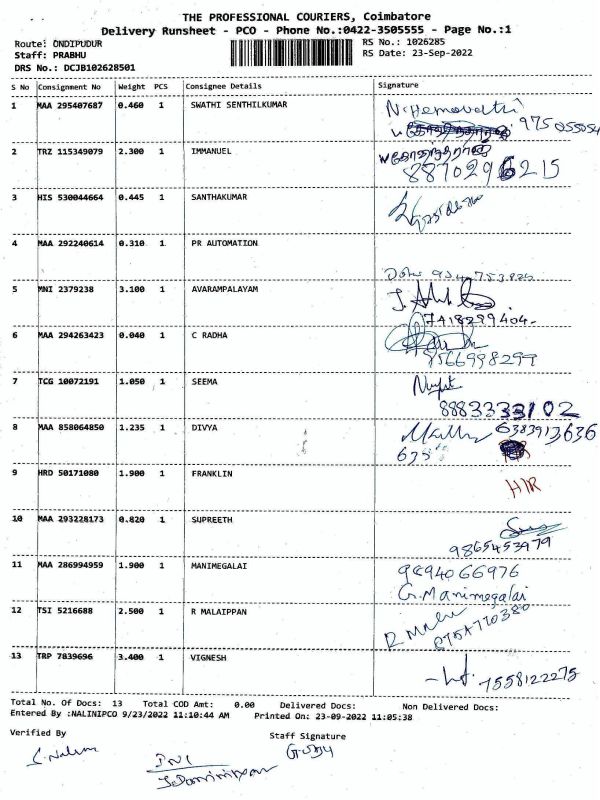 THE PROFESSIONAL COURIERS, Coimbatore
Delivery Runsheet - PCO - Phone No.:0422-3505555 - Page No.:1
Route: ONDIPUDUR RS No.: 1026285
Staff: PRABHU RS Date: 23-Sep-2022
DRS No.: DCJB102628501
S No Consignment No Weight PCS Consignee Details Signature
1 MAA 295407687 0.460 1 SWATHI SENTHILKUMAR
2 TRZ 115349079 2.300 1 IMMANUEL
3 HIS 530044664 0.445 1 SANTHAKUMAR
4 MAA 292240614 0.310 1 PR AUTOMATION
5 MNI 2379238 3.100 1 AVARAMPALAYAM
7418299404
6 MAA 294263423 0.040 1 C RADHA
8566998299
7 TCG 10072191 1.050 1 SEEMA
8 MAA 858064850 1.235 1 DIVYA 6383913636
9 HRD 50171080 1.900 1 FRANKLIN
H/R
10 MAA 293228173 0.820 1 SUPREETH
9865453979
11 MAA 286994959 1.900 1 MANIMEGALAI 9894066976
G.Manimegalai
12 TSI 5216688 2.500 1 R MALAIPPAN
13 TRP 7839696 3.400 1 VIGNESH
7558122275
Total No. Of Docs: 13 Total COD Amt: 0.00 Delivered Docs: Non Delivered Docs:
Entered By :NALINIPCO 9/23/2022 11:10:44 AM Printed On: 23-09-2022 11:05:38
Verified By Staff Signature